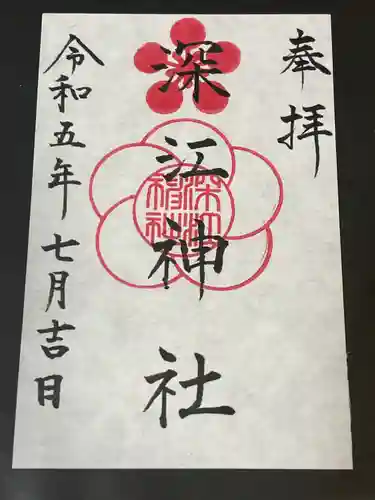 奉拝
深江神社
令和五年七月吉日
深江
神社